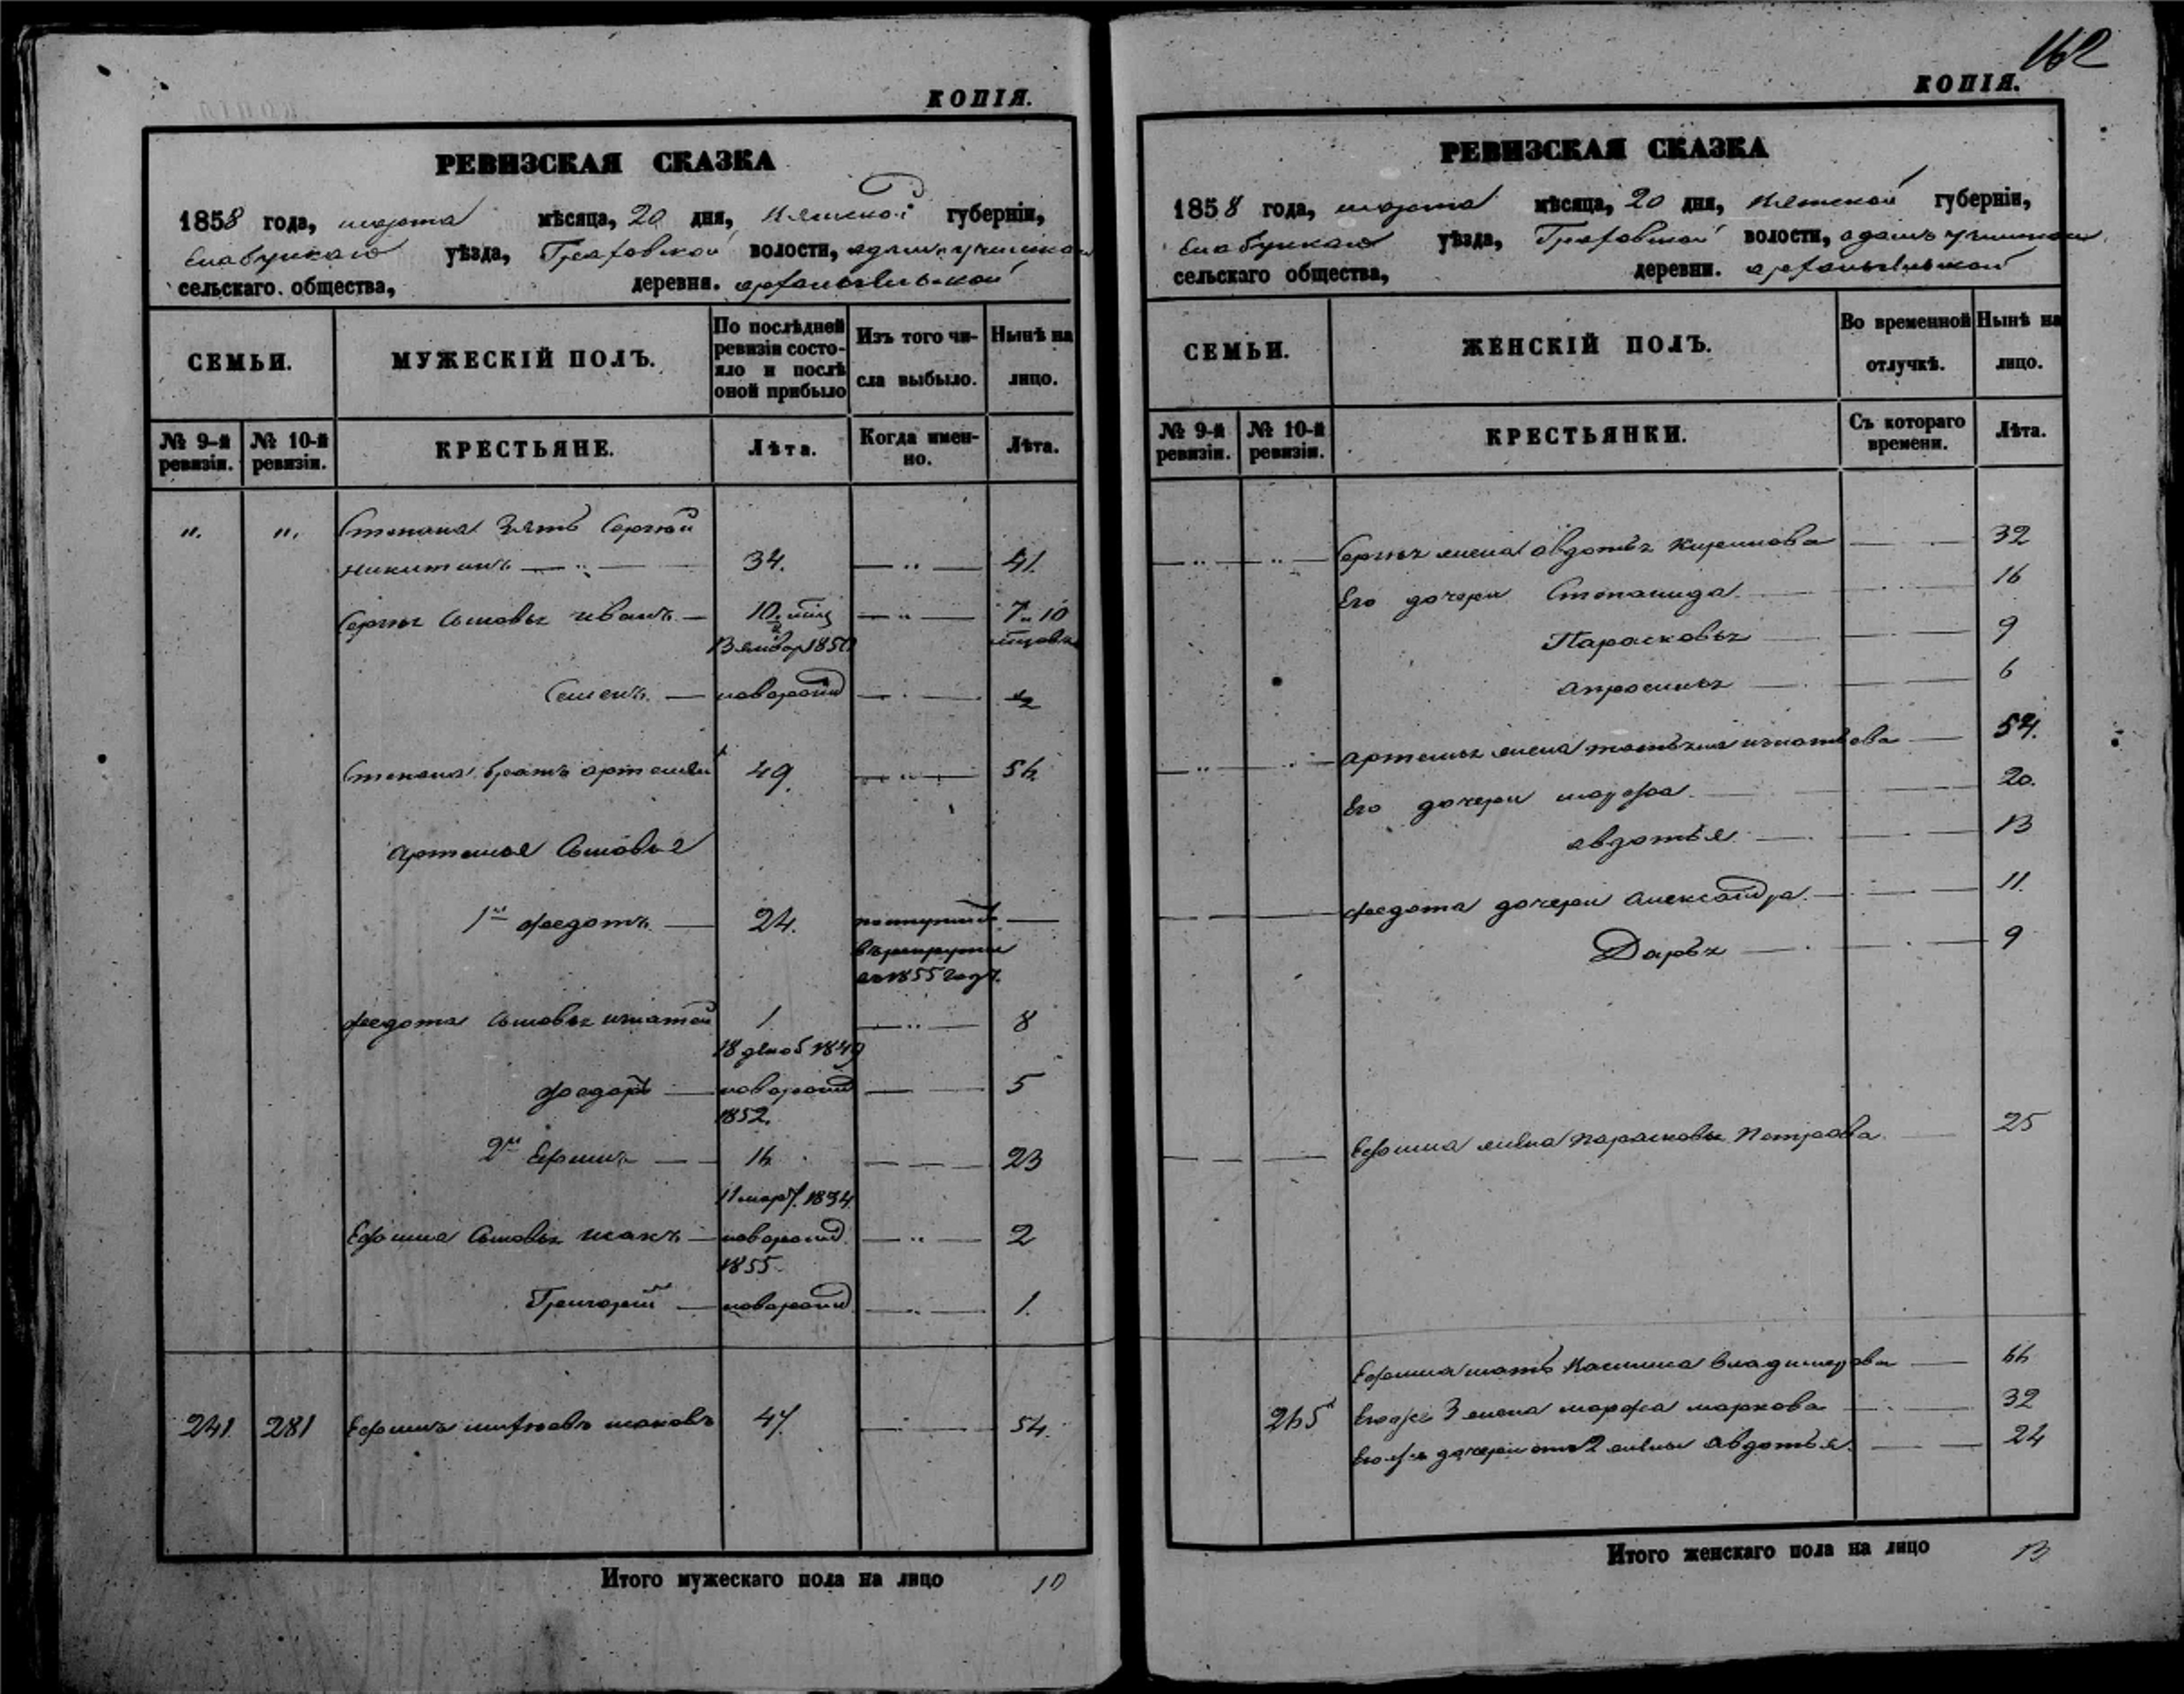 КОПІЯ.
РЕВИЗСКАЯ СКАЗКА
1858 года, марта мѣсяца, 20 дня, Вятской губерніи,
Елабужскаго уѣзда, Граховской волости,
сельскаго общества, деревни. Архангельской
СЕМЬИ.
МУЖЕСКІЙ ПОЛЪ.
По послѣдней ревизіи состояло и послѣ оной прибыло
Изъ того числа выбыло.
Нынѣ на лицо.
№ 9-й ревизіи.
№ 10-й ревизіи.
КРЕСТЬЯНЕ.
Лѣта.
Когда именно.
Лѣта.
". ". Степана Зять Сергѣй
Никитинъ 34. 41.
Сергѣя Сыновья Иванъ
Семенъ новорожд ½
Степана братъ Артемій 49. 56
Артемья Сыновья
1й Федотъ 24. поступилъ
въ рекруты
въ 1855 году.
Федота Сыновья Игнатей 1 8
18 декаб 1849
Федоръ новорожд 5
1852.
2й Ефимъ 16 23
11 мар. 1834
Ефима Сыновья Исакъ новорожд. 2
1855
Григорій новорожд 1.
241. 281 Ефимъ 47. 54.
Итого мужескаго пола на лицо 10
162
КОПІЯ.
РЕВИЗСКАЯ СКАЗКА
1858 года, марта мѣсяца, 20 дня, Вятской губерніи,
Елабужскаго уѣзда, Граховской волости,
сельскаго общества, деревни. Архангельской
СЕМЬИ.
ЖЕНСКІЙ ПОЛЪ.
Во временной отлучкѣ.
Нынѣ на лицо.
№ 9-й ревизіи.
№ 10-й ревизіи.
КРЕСТЬЯНКИ.
Съ котораго времени.
Лѣта.
Сергѣя жена Авдотья Кирилова 32
Его дочери Степанида 16
Парасковья 9
Апросинья 6
Артемья жена Татьяна Игнатьева 54.
Его дочери Марфа 20.
Авдотья 13
Федота дочери Александра. 11.
Дарья 9
Ефима жена Парасковья Петрова 25
Ефима мать Владимерова 66
265 Его же 3 жена Марфа Маркова 32
Его же дочери отъ 2 жены Авдотья 24
Итого женскаго пола на лицо 13